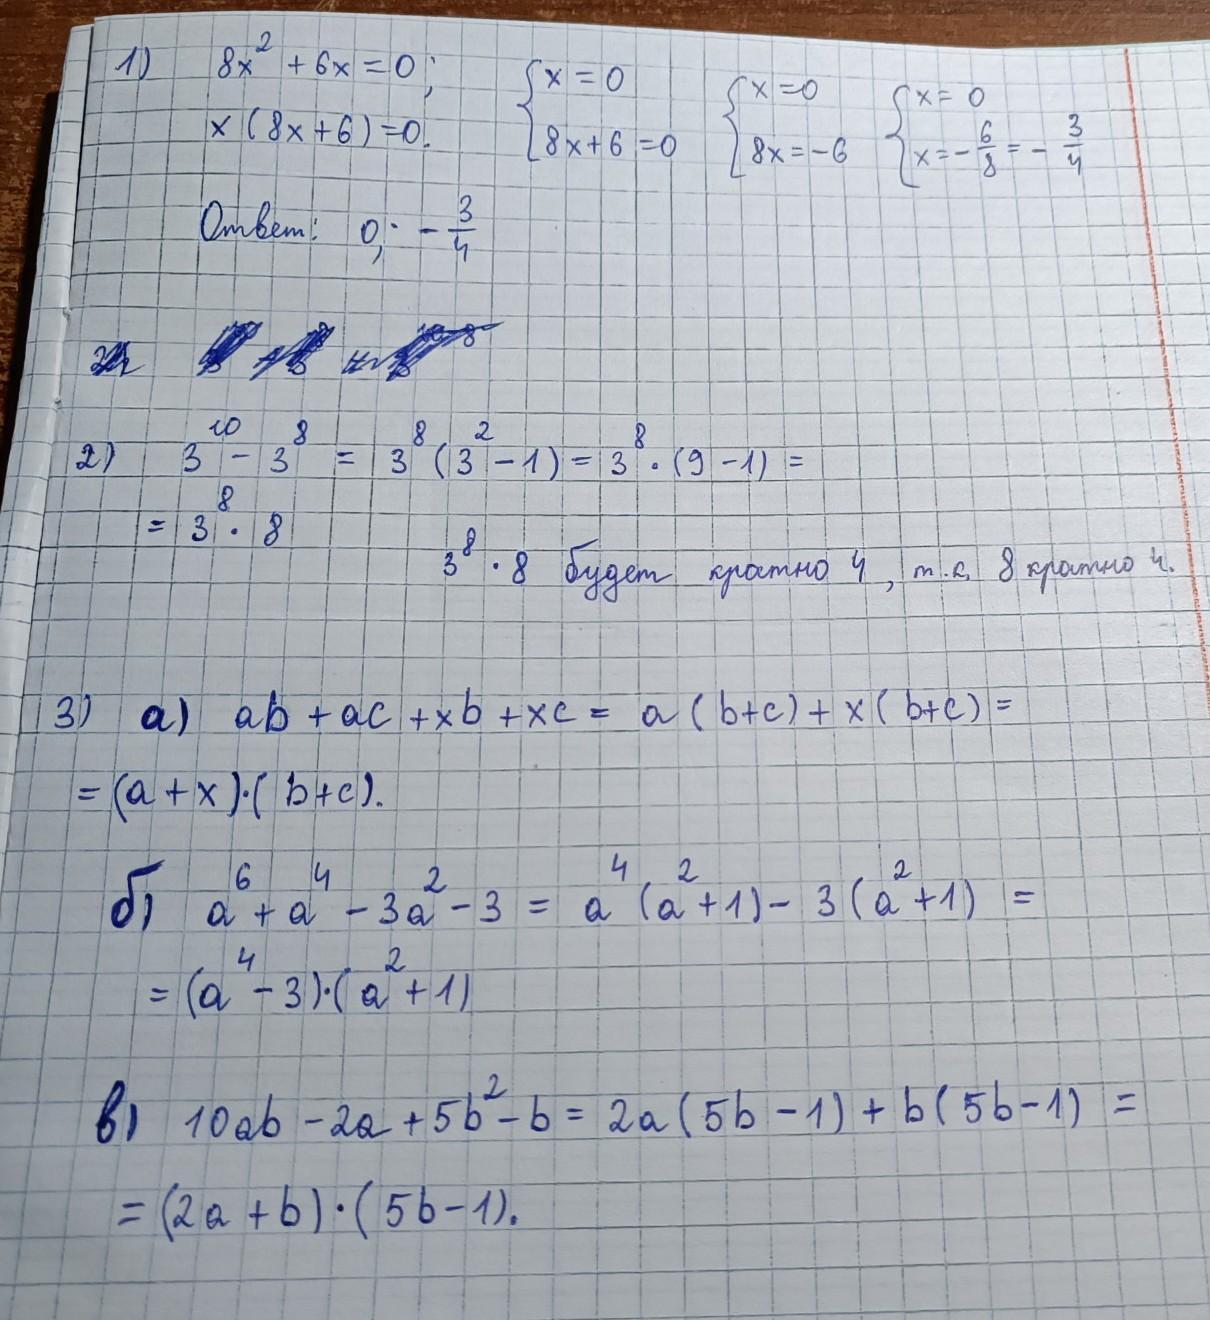 1) 8x² + 6x = 0; { x = 0 { x = 0 { x = 0
x (8x+6) = 0. 8x+6 = 0 8x = -6 x = - 6/8 = - 3/4
Ответ: 0; - 3/4
2) 3¹⁰ - 3⁸ = 3⁸ (3² - 1) = 3⁸ · (9 - 1) =
= 3⁸ · 8
3⁸ · 8 будет кратно 4, т.к. 8 кратно 4.
3) а) ab + ac + xb + xc = a (b+c) + x (b+c) =
= (a + x)·(b+c).
б) a⁶ + a⁴ - 3a² - 3 = a⁴ (a² + 1) - 3 (a² + 1) =
= (a⁴ - 3)·(a² + 1)
в) 10ab - 2a + 5b² - b = 2a (5b - 1) + b (5b - 1) =
= (2a + b) · (5b - 1).